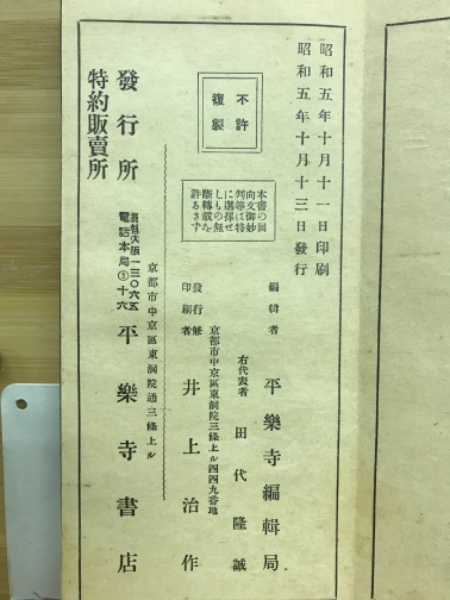 昭和五年十月十一日印刷
昭和五年十月十三日發行
不許
複製
本書の回
向文御妙
判等は特
に選擇せ
しもの無
斷轉載を
許るさず
編輯者 平樂寺編輯局
右代表者 田代隆誠
京都市中京區東洞院三條上ル四四九番地
發行兼
印刷者
井上治作
京都市中京區東洞院通三條上ル
發行所
特約販賣所
振替大阪一三〇六五
電話本局③十六
平樂寺書店